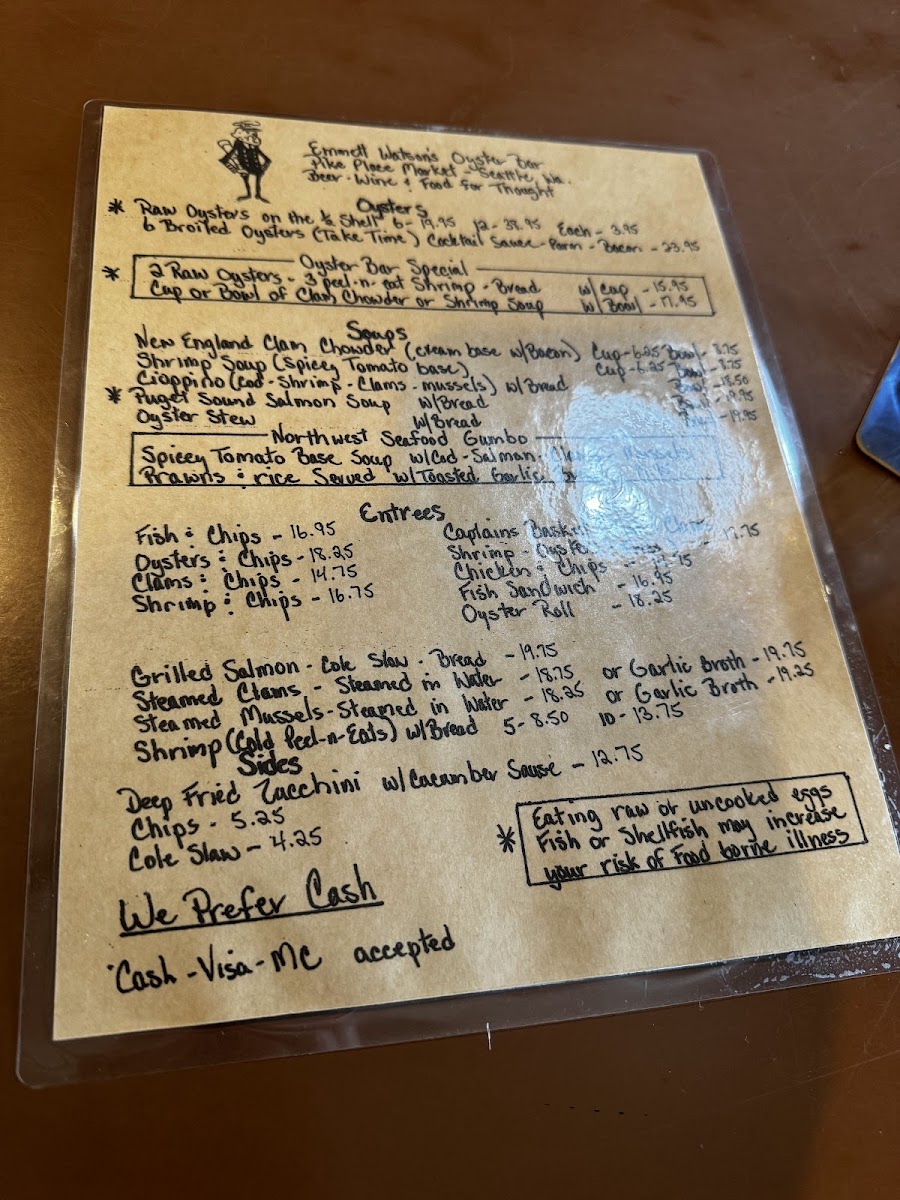 Emmett Watson's Oyster Bar
Pike Place Market - Seattle, Wa.
Beer - Wine & Food For Thought
Oysters
* Raw Oysters on the ½ Shell 6 - 19.95 12 - 38.95 Each - 3.95
6 Broiled Oysters (Take Time) Cocktail Sauce - Parm - Bacon - 23.95
Oyster Bar Special
* 2 Raw Oysters - 3 peel-n-eat Shrimp - Bread w/ Cup - 15.95
Cup or Bowl of Clam Chowder or Shrimp Soup w/ Bowl - 17.95
Soups
New England Clam Chowder (cream base w/Bacon) Cup - 6.25 Bowl - 8.75
Shrimp Soup (spicey Tomato base) Cup - 6.25 Bowl - 8.75
Cioppino (Cod - Shrimp - Clams - mussels) w/ Bread Bowl - 18.50
* Puget Sound Salmon Soup w/Bread 19.95
Oyster Stew w/Bread 19.95
Northwest Seafood Gumbo
Spicey Tomato Base Soup w/Cod - Salmon -
Prawns & rice Served w/Toasted Garlic
Entrees
Fish & Chips - 16.95
Oysters & Chips - 18.25
Clams & Chips - 14.75
Shrimp & Chips - 16.75
Captains Basket
Shrimp - 17.75
Chicken & Chips
Fish Sandwich - 16.95
Oyster Roll - 18.25
Grilled Salmon - Cole Slaw - Bread - 19.75
Steamed Clams - Steamed in Water - 18.75 or Garlic Broth - 19.75
Steamed Mussels - Steamed in Water - 18.25 or Garlic Broth - 19.25
Shrimp (Cold Peel-n-Eats) w/Bread 5 - 8.50 10 - 13.75
Sides
Deep Fried Zucchini w/Cucumber Sause - 12.75
Chips - 5.25
Cole Slaw - 4.25
* Eating raw or uncooked eggs
Fish or Shellfish may increase
your risk of Food borne illness
We Prefer Cash
Cash - Visa - MC accepted